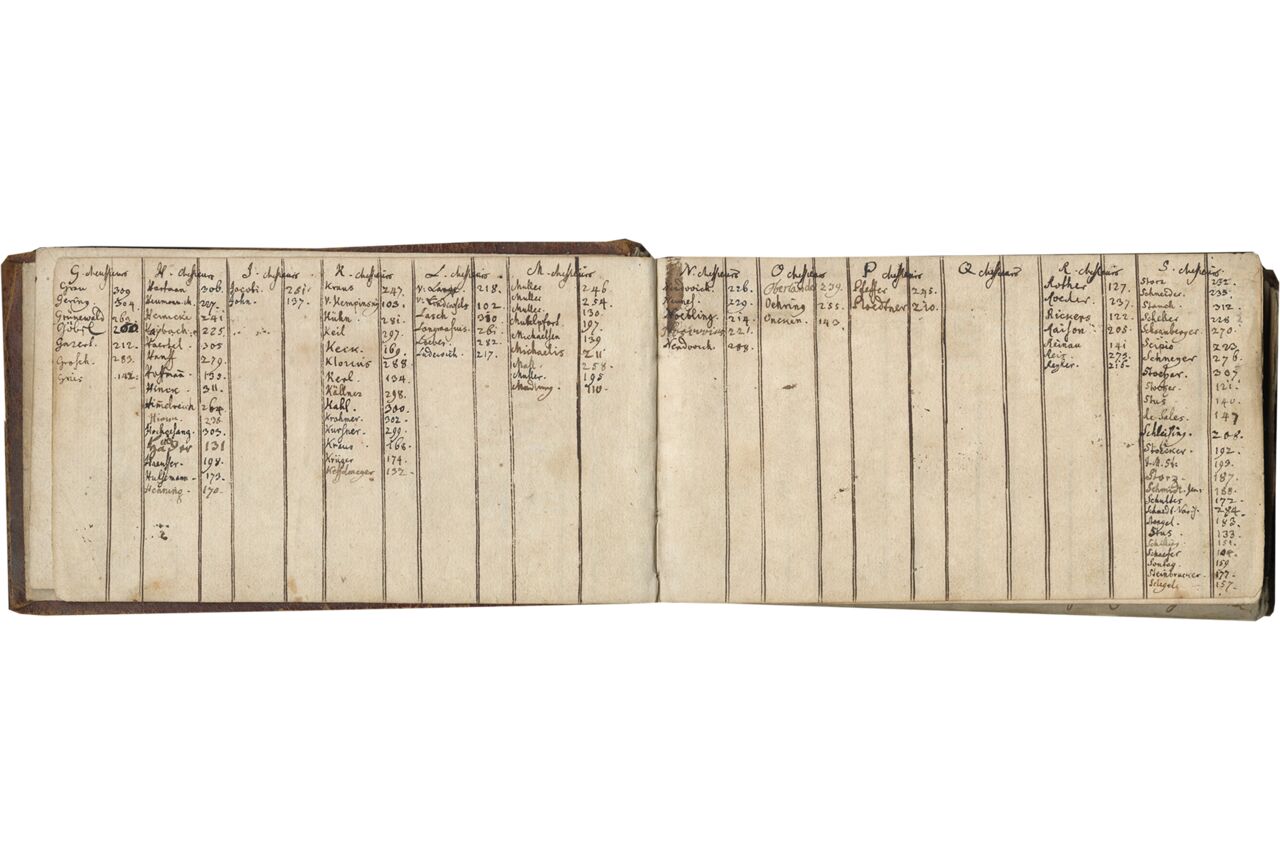 G. Messieurs
Grau 309
Gering. 304.
Grünewald 263.
Göbel 260
Gazert. 212.
Grosch. 283.
Gries 142.
H. Messieurs
Hartman 306.
Heumann 207.
Hernicke 241
Haybach 225.
Haertel 305
Hanff 279.
Hofman 135.
Hinck. 311.
Himdreich 264.
Hirson 236
Hochgesang. 303.
131
Haenser 198.
Hulsemann 173.
Henning. 170.
I. Messieurs
Jacobi. 251
John. 137.
K. Messieurs
Kraus 247.
v. Kempinsky 103.
Hühn 281.
Keil 297.
Keck 169.
Klorius 288
Kerl 134.
Källner 298.
Kahl. 300.
Krahmer 302.
Kurssner 299.
Kraus 168.
Krüger 174.
Koffelmeyer 132.
L. Messieurs
v. Lange 218.
v. Lindenfels 102
Lasch 380
Longnafius 261
Loeber 282.
Luderich. 217.
M. Messieurs
Muller 246.
Muller 254.
Muller 130.
Muhlpfort 197.
Michaelsen 139
Michaelis 211
Mall 258.
Muller 195
Madung 110.
N. Messieurs
226.
229.
Noetling. 214.
221.
Nendwich. 288.
O Messieurs
Oberlände 239.
Oehring 235.
Oncken 143
P Messieurs
Pfeffer 245.
Ploedtner 210.
Q Messieurs
R. Messieurs
Rother 127.
Roeder 237.
Rickers 122.
Raison 205.
Reinau 141
Reis 273.
Regler 215.
S. Messieurs
Storz 232.
Schneider. 233.
Stauch. 312
Scheller 228
Schomberger. 270.
Scipio 223
Schneger 276.
Stoeber. 307
Stoeber. 121.
Stus 140.
de Sales. 147
Schleising. 208.
Stoecker. 192.
193.
Storz 187.
Schmidt. Jen. 188.
Schultes 172.
284
Stangel. 183.
Stus 133.
151.
Schaefer 104.
Sontag. 159
Steinbrucker. 177.
Schlegel 157.